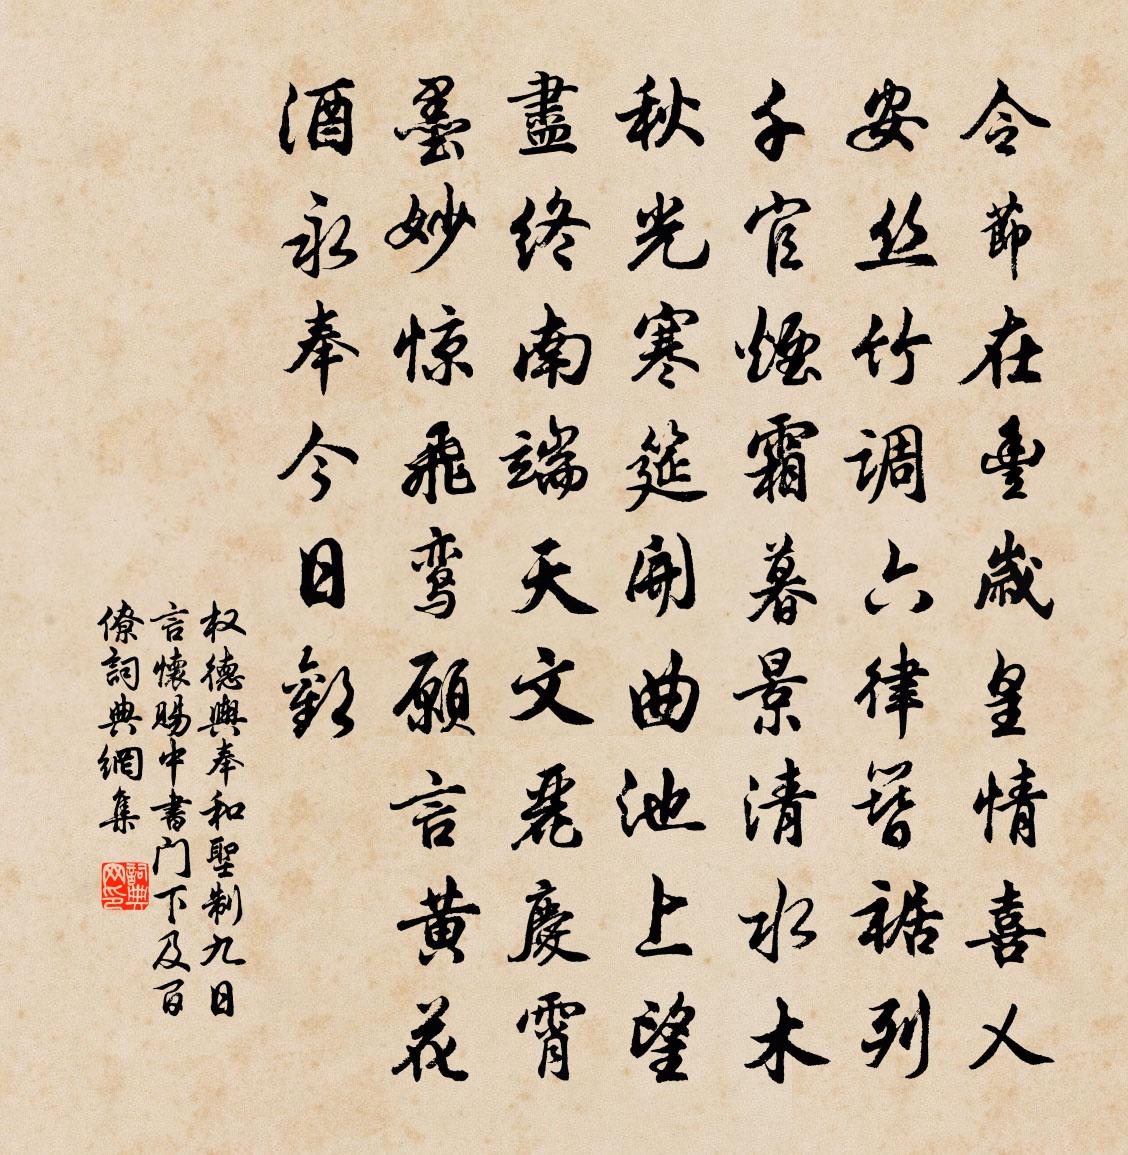 令節在豐歲皇情喜乂
安丝竹調六律簪裾列
千官煙霜暮景清水木
秋光寒筵開曲池上望
盡終南端天文麗慶霄
墨妙惊飛鸾願言黄花
酒永奉今日歡
权德輿奉和聖制九日
言懷賜中書门下及百
僚詞典網集
詞典
网印